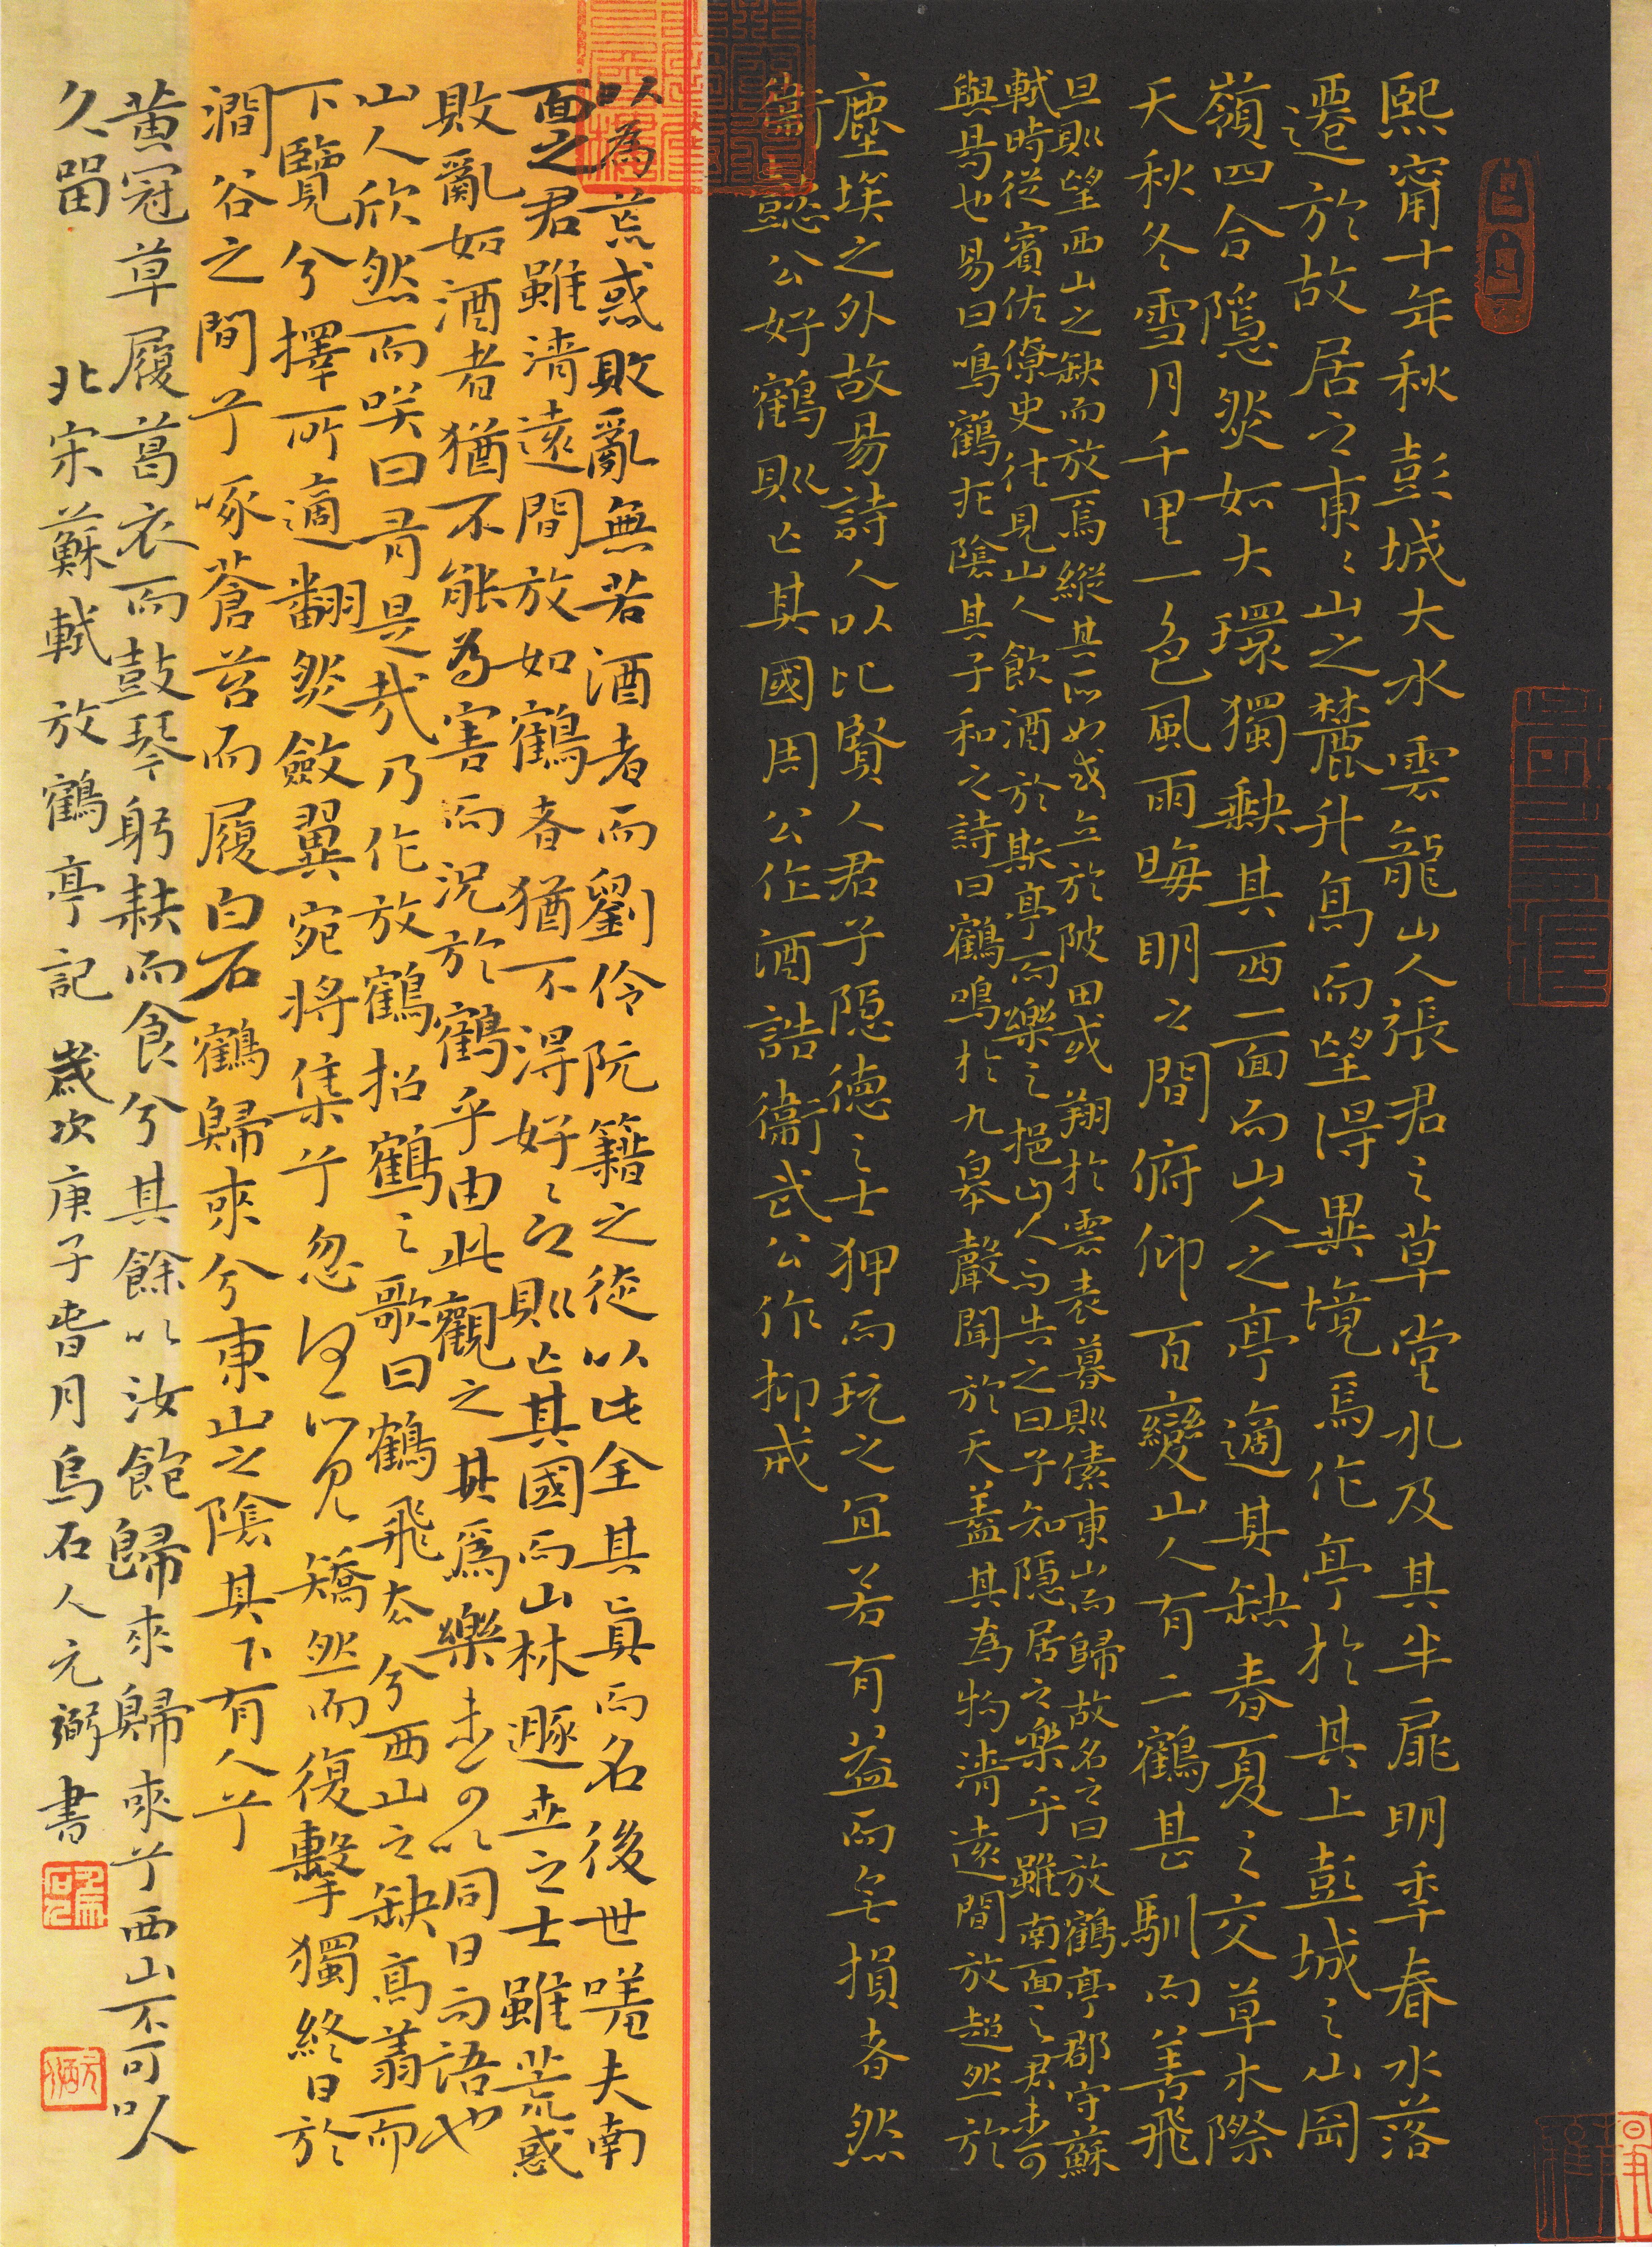 熙甯十年秋彭城大水雲龍山人張君之草堂水及其半扉明季春水落
遷於故居之東々山之麓升高而望得異境焉作亭於其上彭城之山岡
嶺四合隱然如大環獨缺其西一面而山人之亭適其缺春夏之交草木際
天秋冬雪月千里一色風雨晦明之間俯仰百變山人有二鶴甚馴而善飛
旦則望西山之缺而放焉縱其所如或立於陂田或翔於雲表暮則傃東山而歸故名之曰放鶴亭郡守蘇
軾時從賓佐僚史往見山人飲酒於斯亭而樂之挹山人而告之曰子知隱居之樂乎雖南面之君未可
與易也易曰鳴鶴在陰其子和之詩曰鶴鳴於九皋聲聞於天蓋其為物清遠閒放超然於
塵埃之外故易詩人以比賢人君子隱德之士狎而玩之宜若有益而無損者然
衛懿公好鶴則亡其國周公作酒誥衛武公作抑戒
以為荒惑敗亂無若酒者而劉伶阮籍之徒以此全其真而名後世嗟夫南
面之君雖清遠閒放如鶴者猶不得好々之則亡其國而山林遯世之士雖荒惑
敗亂如酒者猶不能為害而況於鶴乎由此觀之其為樂未可以同日而語也
山人欣然而笑曰有是哉乃作放鶴招鶴之歌曰鶴飛去兮西山之缺高翥而
下覽兮擇所適翻然斂翼宛將集兮忽何所見矯然而復擊獨終日於
澗谷之間兮啄蒼苔而履白石鶴歸來兮東山之陰其下有人兮
黃冠草履葛衣而鼓琴躬耕而食兮其餘以汝飽歸來歸來兮西山不可以
久留 北宋蘇軾放鶴亭記 歲次庚子春月烏石人元弼書